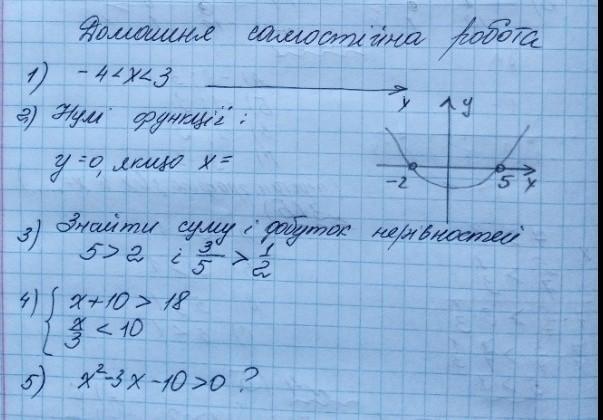 Домашня самостійна робота
1) -4<x<3
x
y
2) Нулі функції:
y=0, якщо x=
-2 5 x
3) Знайти суму і добуток нерівностей
5>2 і 3/5 > 1/2
4) { x+10 > 18
x/3 < 10
5) x²-3x-10>0 ?